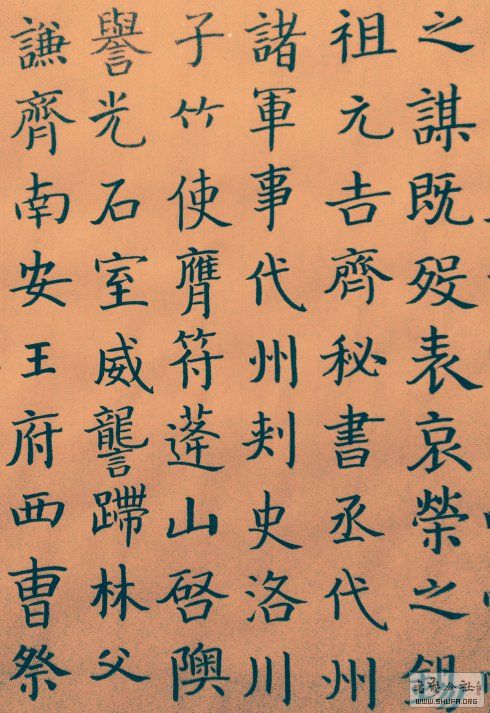 之謀既歿表哀榮之錫
祖元吉齊秘書丞代州
諸軍事代州刾史洛川
子竹使膺符蓬山啓隩
譽光石室威讋蹛林父
謙齊南安王府西曹祭
WWW.SHUFA.ORG